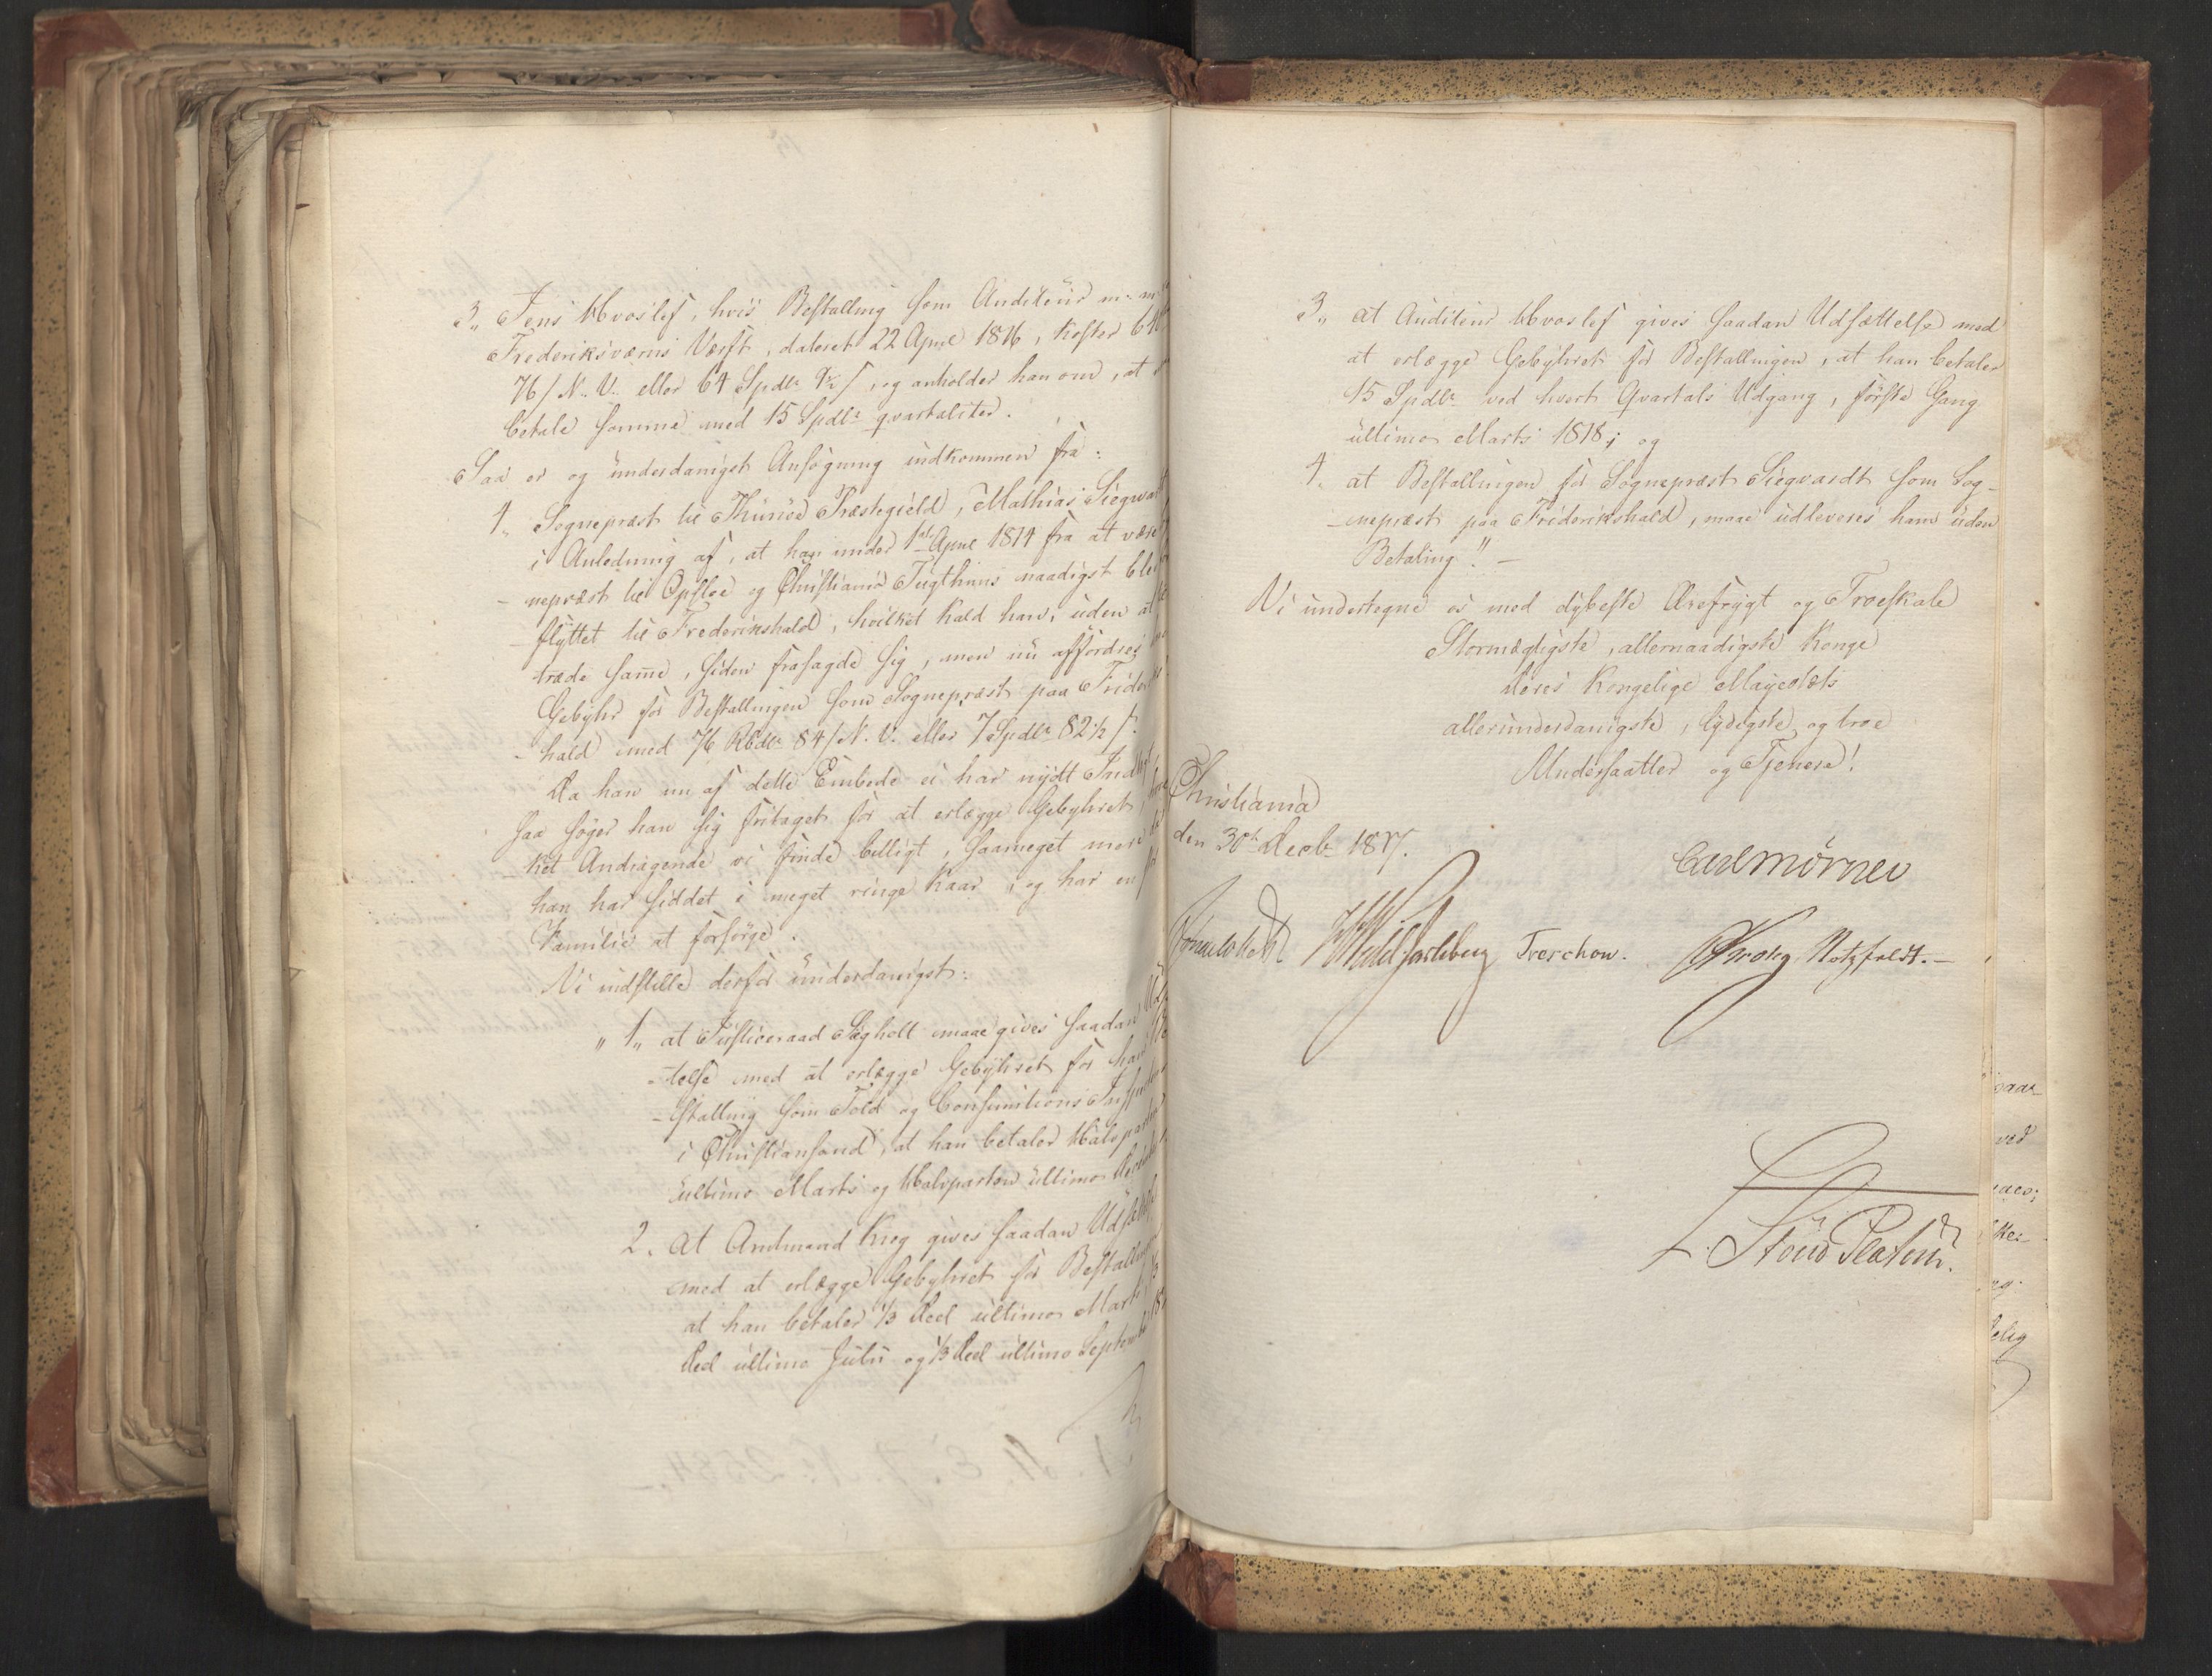 3„ Jens Hvoslef, hvis Bestalling som Auditeur m: m
Frederiksværns Værft, dateret 22 April 1816, koster 64
76/ N. V. eller 64 Spdlr 9½ ſ, og anholder han om, at
betale samme med 15 Spdlr qvartaliter.
Saa er og underdanigst Ansøgning indkommen fra:
4„ Sognepræst til Thunøe Præstegield, Mathias Siegwardt
i Anledning af, at han under 1ste April 1814 fra at være
nepræst til Opsloe og Christiania Tugthuus naadigst blev
flyttet til Frederikshald, hvilket Kald han, uden at
træde same, siden frasagde sig, men nu affordres
Gebyhr for Bestallingen som Sognepræst paa Frider
-hald med 76 Rbdlr 84/ N. V. eller 7 Spdlr 82½ ſ.
Da han nu af dette Embede ei har nydt Indtægt
saa søger han sig fritaget for at erlægge Gebyhret,
-ket Andragende vi finde billigt, saameget mere
han har siddet i meget ringe Kaar, og har en
Familie at forsørge.
Vi indstille derfor underdanigst:
„ 1„ at Justiceraad Søgholt maae gives saadan Ud
-telse med at erlægge Gebyhret for hans Be
-stalling som Told og Consumtions Inspecteur
i Christiansand, at han betaler Halvparten
ultimo Marts og Halvparten ultimo
2. at Amtmand Krog gives saadan Udsættelse
med at erlægge Gebyhret for Bestallingen
at han betaler ⅓ Deel ultimo Marts, ⅓
Deel ultimo Julii og ⅓ Deel ultimo September 18
3„ at Auditeur Hvoslef gives saadan Udsættelse med
at erlægge Gebyhret for Bestallingen, at han betaler
15 Spdlr ved hvert Qvartals Udgang, første Gang
ultimo Marts 1818; og
4. at Bestallingen for Sognepræst Siegvardt som Sog-
-nepræst paa Friderikshald, maae udleveres ham uden
Betaling". –
Vi undertegne os med dybeste Ærefrygt og Troeskab
Stormægtigste, allernaadigste Konge
Deres Kongelige Mayestæts
allerunderdanigste, lydigste og troe
Undersaatter og Tjenere!
Christiania
den 30te Decbr 1817.
Carl Mörner
Sommerhielm Wedel Jarlsberg Treschow. Krohg Motzfeldt. –
L. Stoud Platou.